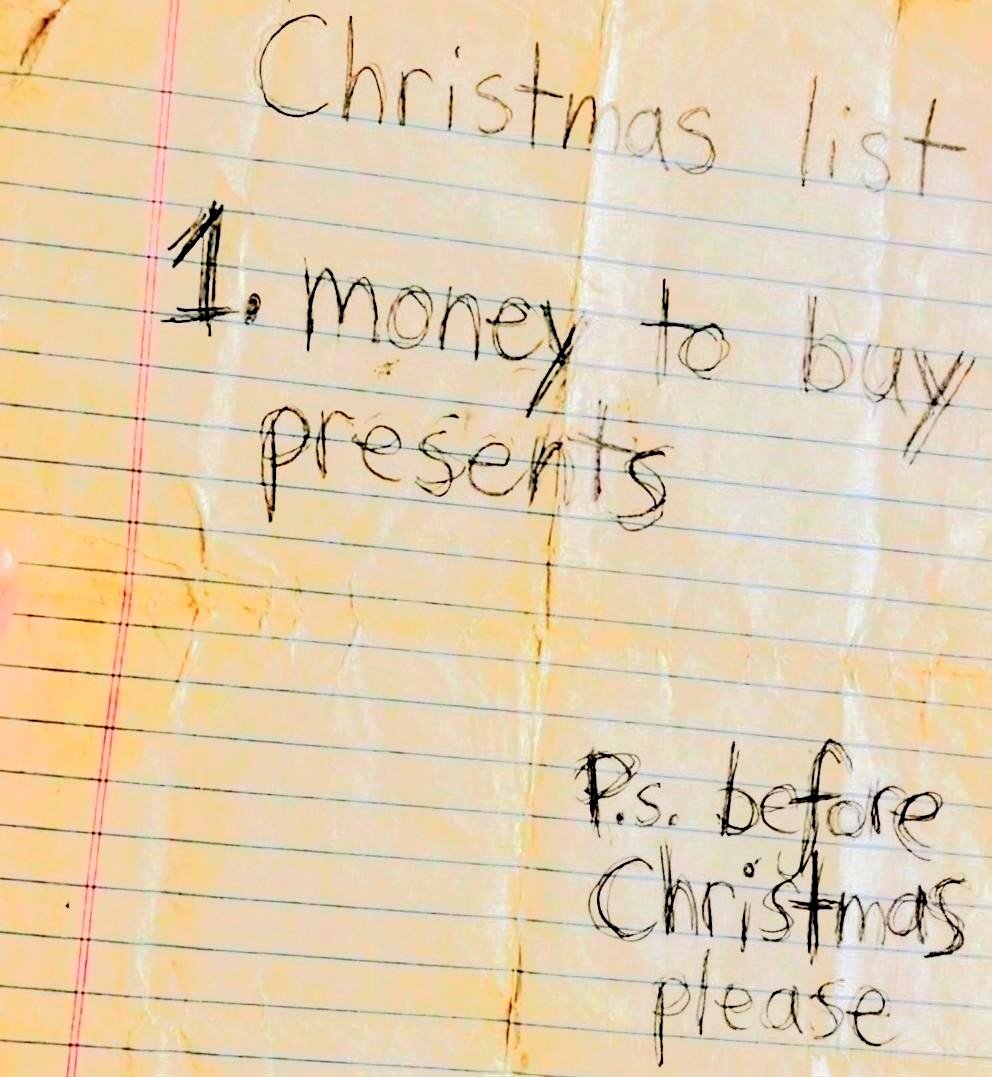 Christmas list
1. money to buy
presents
P.s. before
Christmas
please